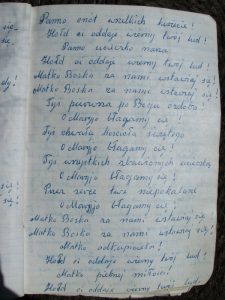 Panno cnot wszelkich kwiecie!
Hołd ci oddaje wierny twój lud!
Panno uciecho nasza
Hołd ci oddaje wierny twój lud!
Matko Boska za nami wstawiaj się!
Matko Boska za nami wstawiaj się!
Tyś pierwsza po Bogu ozdoba!
O Maryjo błagamy cię!
Tyś chwała kościoła świętego
O Maryjo błagamy cię!
Tyś wszystkich zbawionych ucieczką
O Maryjo błagamy cię!
Przez serce twe niepokalane
O Maryjo błagamy cię!
Matko Boska za nami wstawiaj się
Matko Boska za nami wstawiaj się!
Matko odkupiciela!
Hołd ci oddaje wierny twój lud!
Matko pięknej miłości!
Hołd ci oddaje wierny twój lud